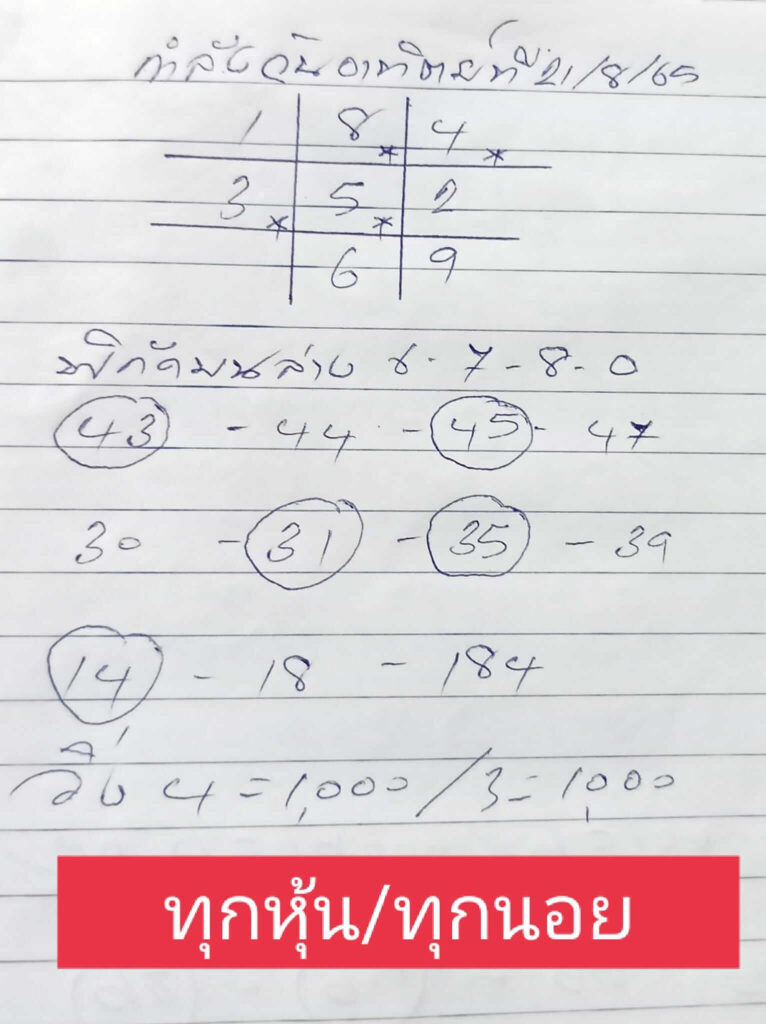 กำลังวันอาทิตย์ที่ 21/8/65
1 8 4
3 5 2
6 9
พิกัดบนล่าง 8-7-8-0
43 - 44 - 45 - 47
30 - 31 - 35 - 39
14 - 18 - 184
วิ่ง 4 = 1,000 / 3 = 1,000
ทุกหุ้น/ทุกนอย